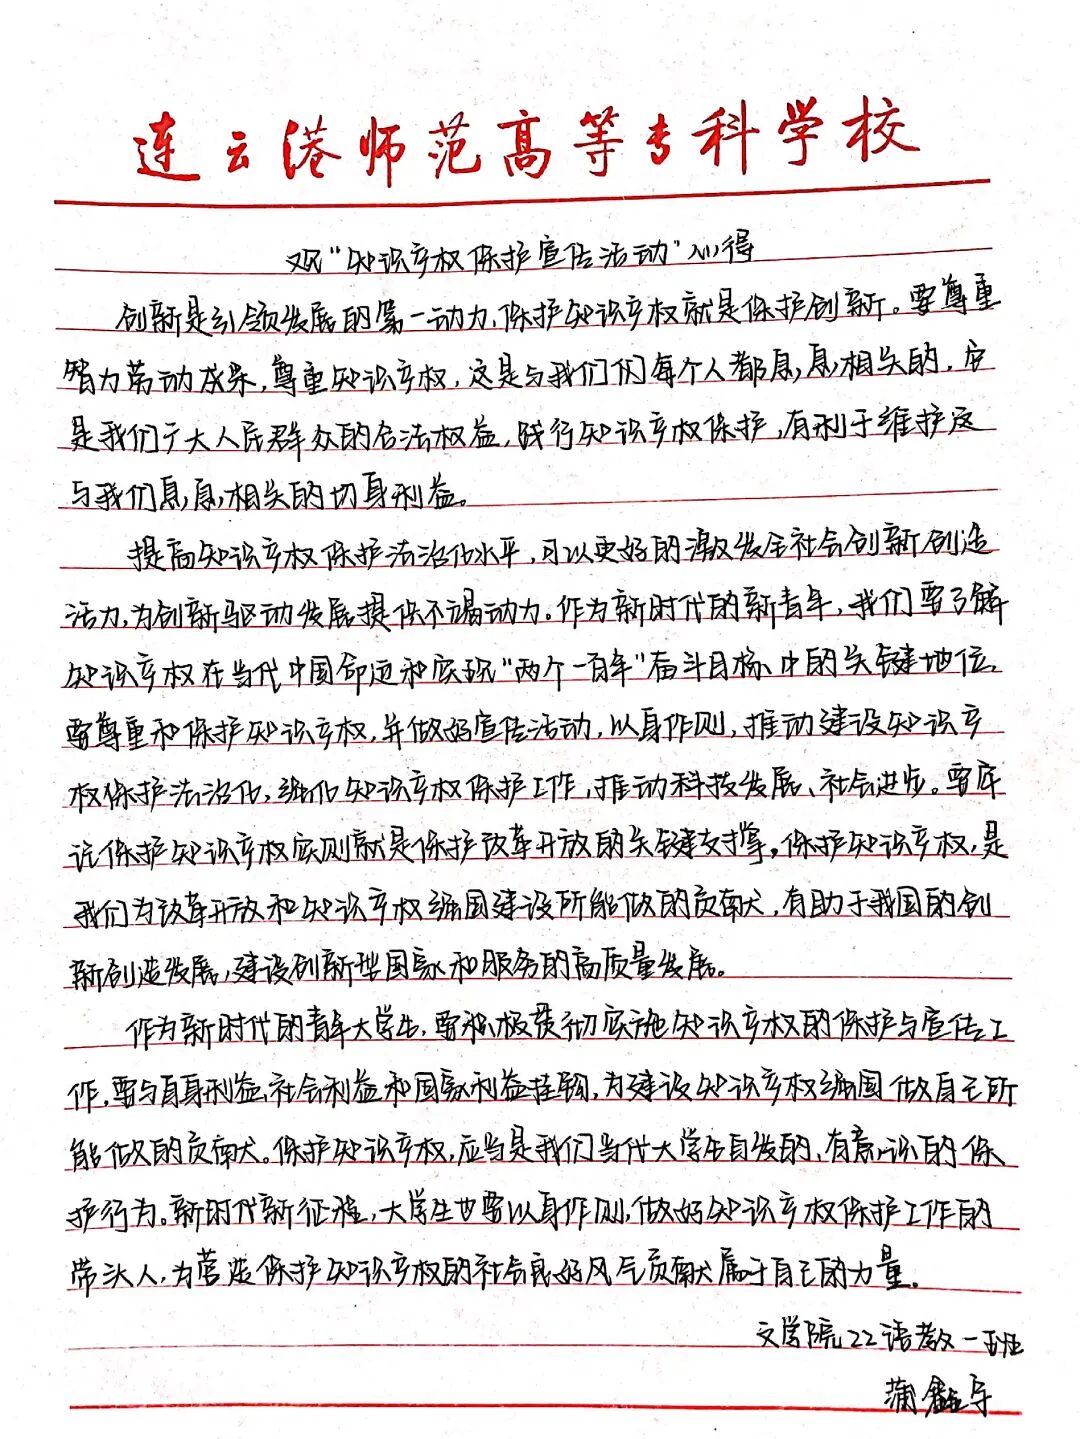 连云港师范高等专科学校
观“知识产权保护宣传活动”心得
创新是引领发展的第一动力，保护知识产权就是保护创新。要尊重
智力劳动成果，尊重知识产权，这是与我们们每个人都息息相关的，它
是我们广大人民群众的合法权益，践行知识产权保护，有利于维护这
与我们息息相关的切身利益。
提高知识产权保护法治化水平，可以更好的激发全社会创新创造
活力，为创新驱动发展提供不竭动力。作为新时代的新青年，我们要了解
知识产权在当代中国命运和实现“两个一百年”奋斗目标中的关键地位。
要尊重和保护知识产权，并做好宣传活动，以身作则，推动建设知识产
权保护法治化，强化知识产权保护工作，推动科技发展、社会进步。要牢
记保护知识产权实则就是保护改革开放的关键支撑。保护知识产权，是
我们为改革开放和知识产权强国建设所能做的贡献，有助于我国的创
新创造发展，建设创新型国家和服务的高质量发展。
作为新时代的青年大学生，要积极贯彻实施知识产权的保护与宣传工
作，要与自身利益、社会利益和国家利益挂钩，为建设知识产权强国做自己所
能做的贡献。保护知识产权，应当是我们当代大学生自发的、有意识的保
护行为。新时代新征程，大学生也要以身作则，做好知识产权保护工作的
带头人，为营造保护知识产权的社会良好风气贡献属于自己的力量。
文学院22语教一班
蒲鑫宇